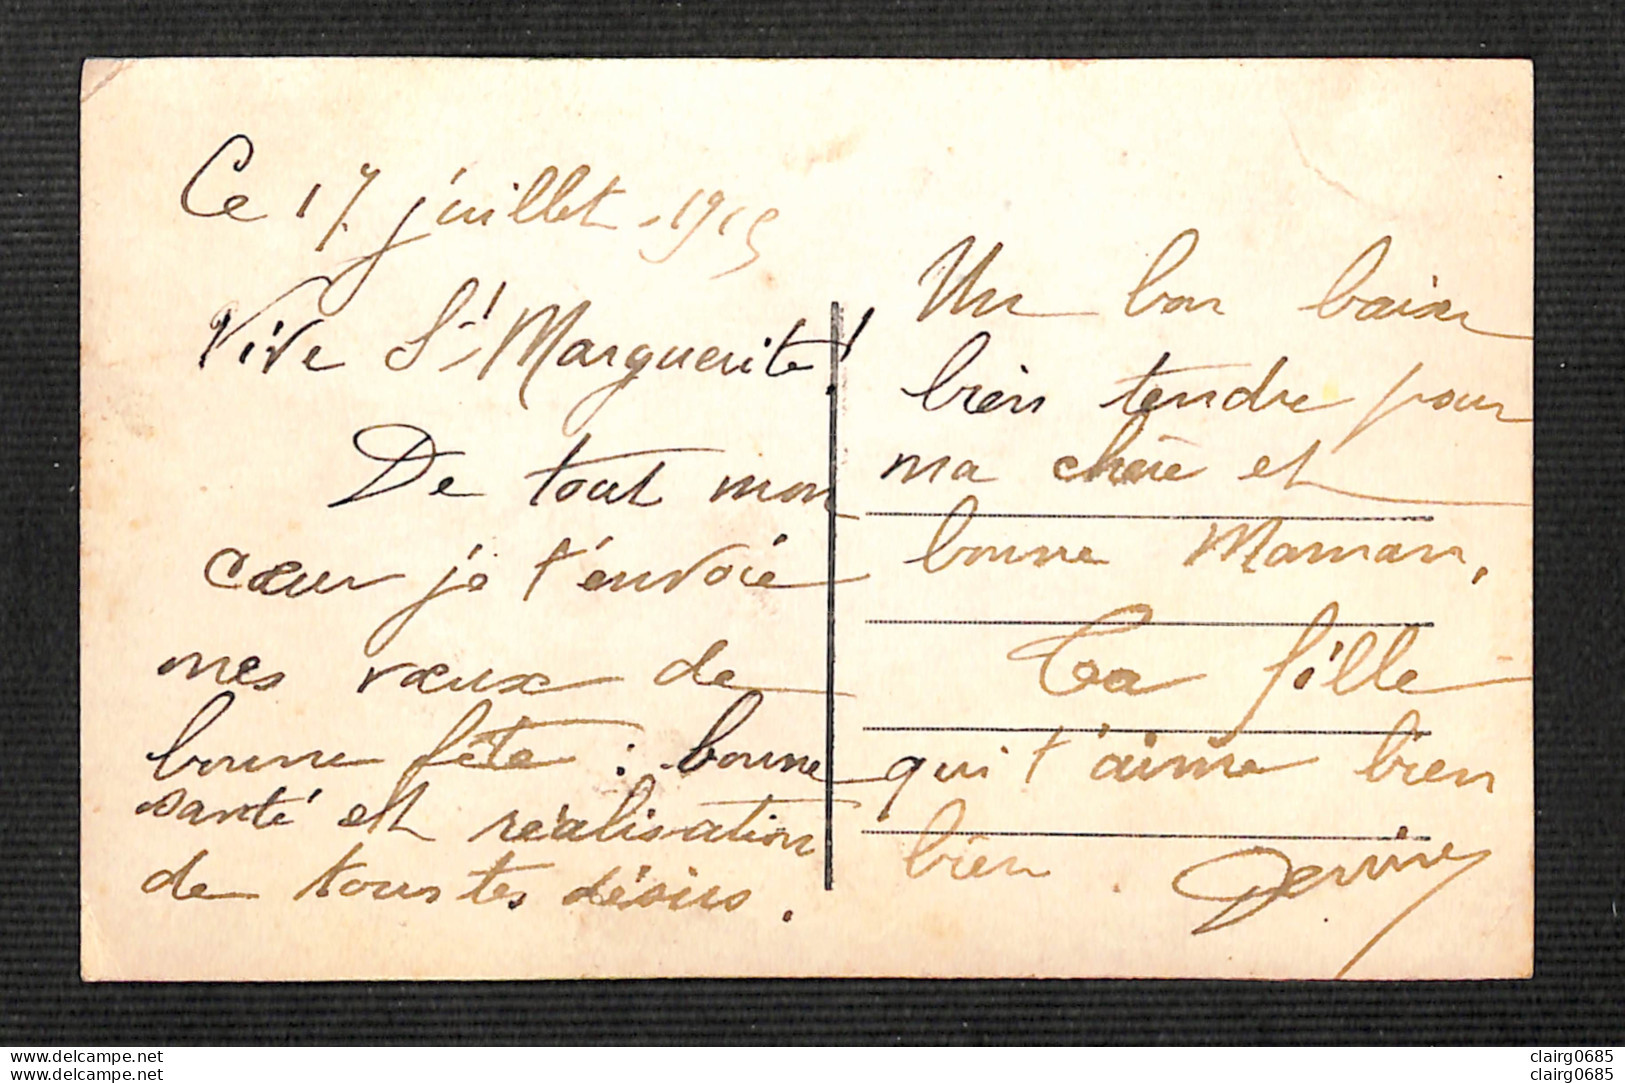 Ce 17 juillet 1915
Vive St Marguerite !
De tout mon
cœur je t'envoie
mes vœux de
bonne fête : bonne
santé et réalisation
de tous tes désirs .
Un bon baiser
bien tendre pour
ma chère et
bonne Maman,
Ta fille
qui t'aime bien
bien .
www.delcampe.net
www.delcampe.net
clairg0685
clairg0685